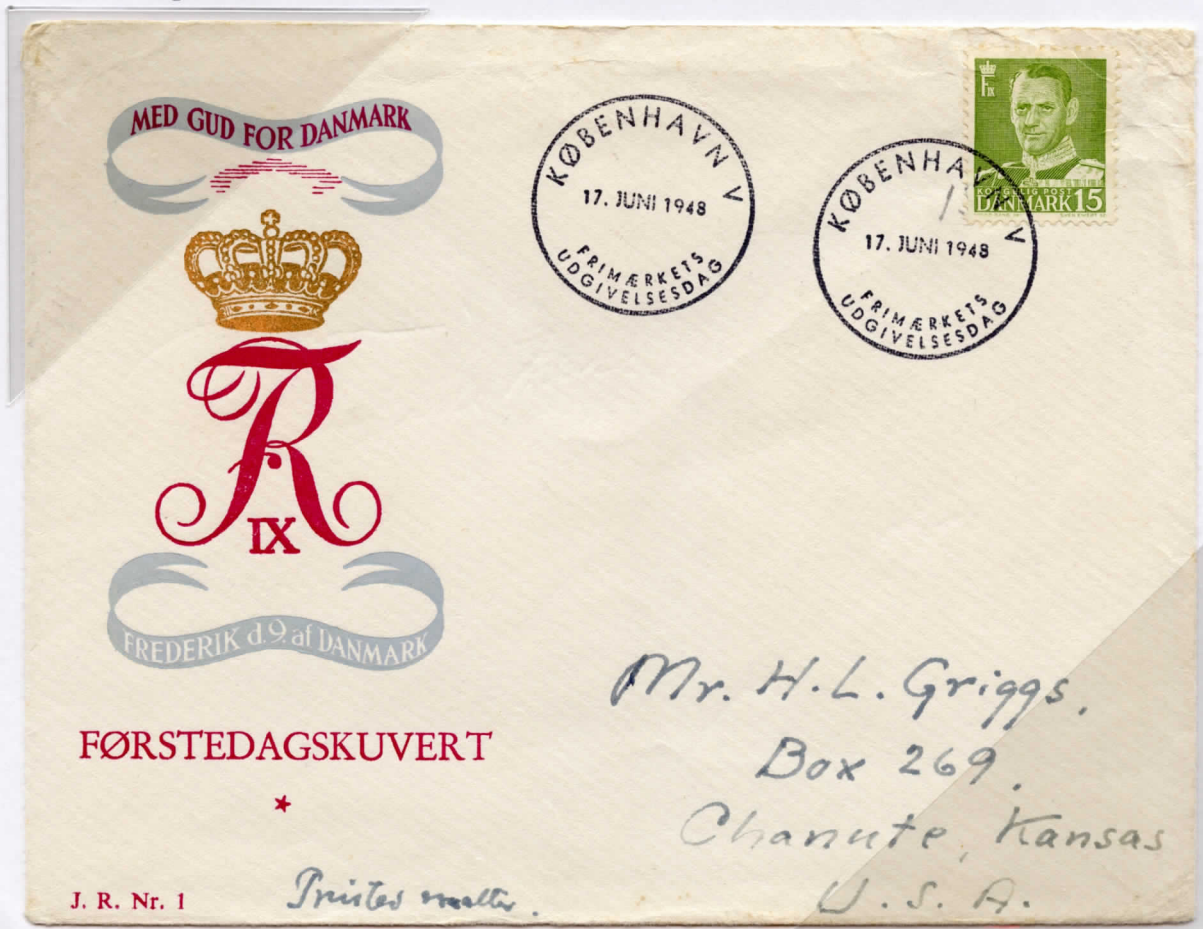 MED GUD FOR DANMARK
FR
IX
FREDERIK d. 9. af DANMARK
FØRSTEDAGSKUVERT
J. R. Nr. 1
Printed matter.
KØBENHAVN V
17. JUNI 1948
FRIMÆRKETS
UDGIVELSESDAG
KØBENHAVN V
17. JUNI 1948
FRIMÆRKETS
UDGIVELSESDAG
F IX
KONGELIG POST
DANMARK 15
Mr. H. L. Griggs,
Box 269,
Chanute, Kansas
U. S. A.